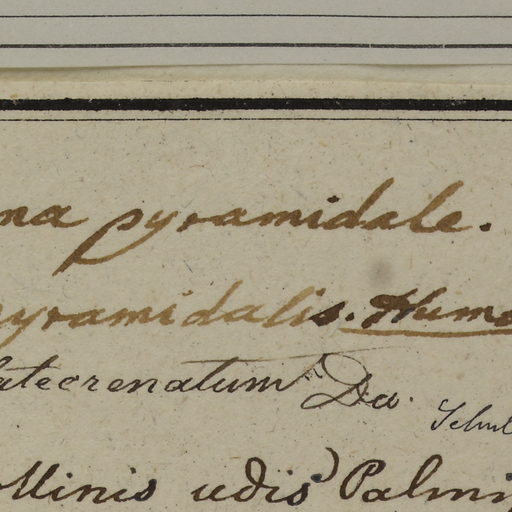 na pyramidale.
pyramidalis. Humb
latecrenatum Da. Schul
ollinis udis Palmi